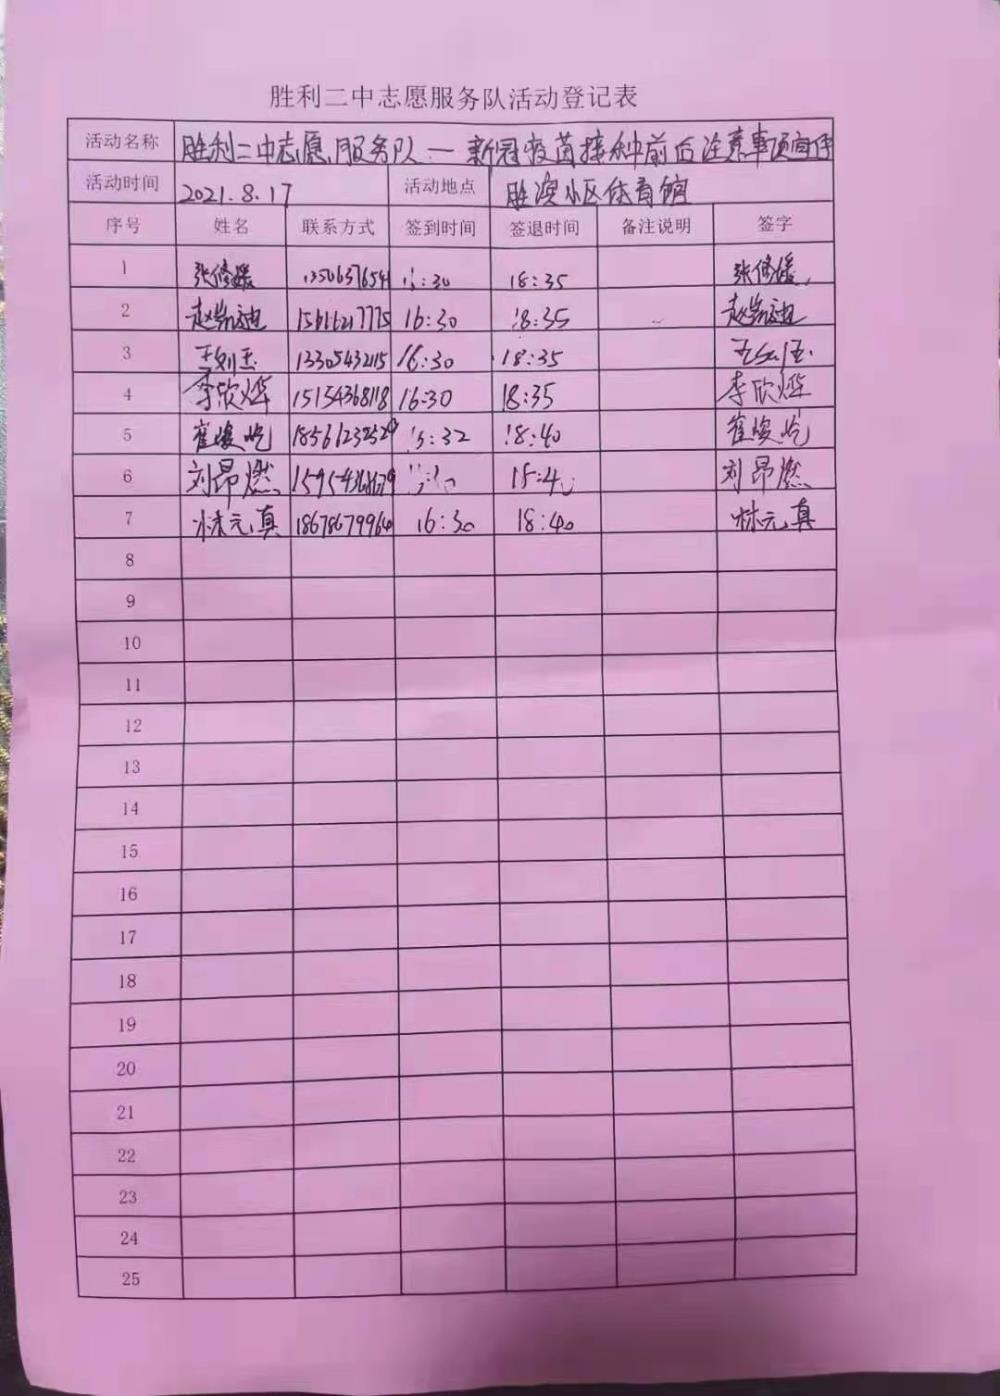 胜利二中志愿服务队活动登记表
活动名称 胜利二中志愿服务队—新冠疫苗接种前后注意事项宣传
活动时间 2021.8.17 活动地点 胜滨小区体育馆
序号 姓名 联系方式 签到时间 签退时间 备注说明 签字
1 张修媛 :30 18:35 张修媛
2 赵 16:30 18:35 赵
3 13305432115 16:30 18:35
4 李欣烨 15154368118 16:30 18:35 李欣烨
5 崔峻屹 :32 18:40 崔峻屹
6 刘昂燃 刘昂燃
7 林元真 18678679960 16:30 18:40 林元真
8
9
10
11
12
13
14
15
16
17
18
19
20
21
22
23
24
25